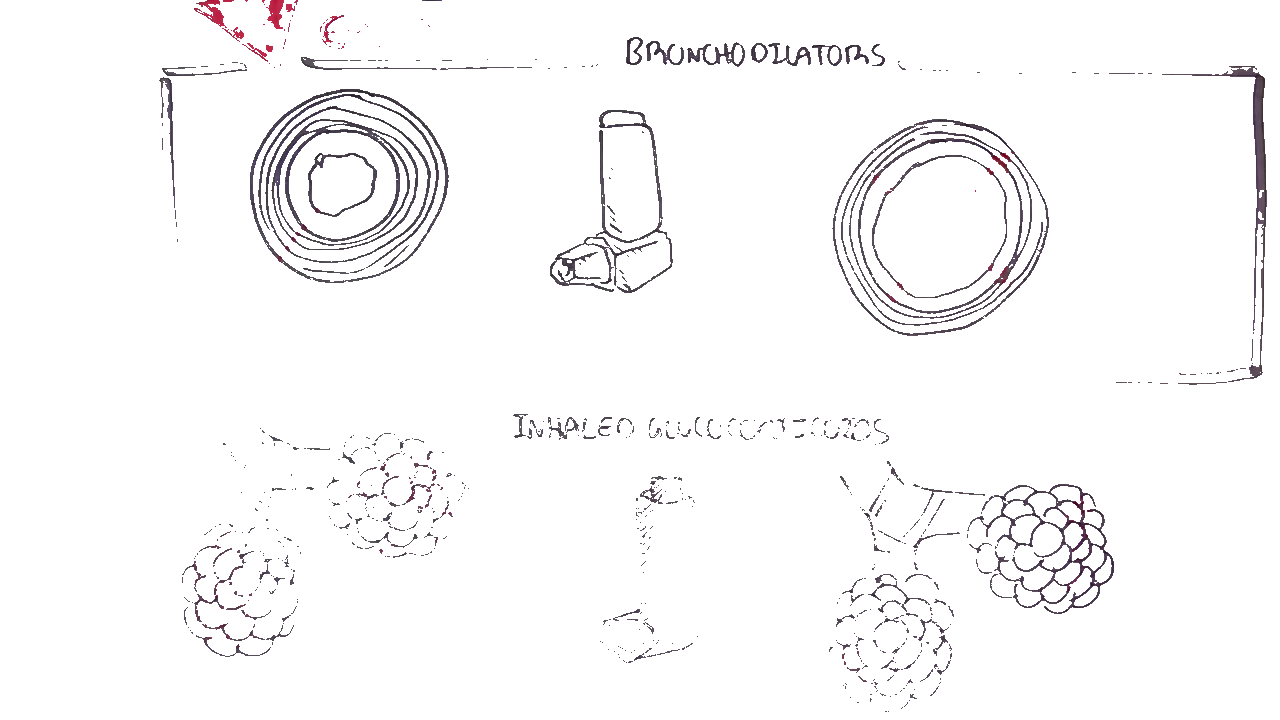 BRONCHODILATORS
INHALED GLUCOCORTICOIDS